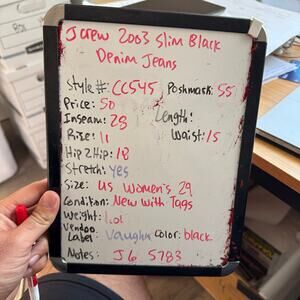 J Crew 2003 Slim Black
Denim Jeans
Style#: CC545 Poshmark: 55
Price: 50 Length:
Inseam: 28 Waist: 15
Rise: 11
Hip 2 Hip: 18
Stretch: yes
Size: US Women's 29
Condition: New with Tags
Weight: 1.01
Vendoo
Label: Vaughn Color: black
Notes: J6 5783